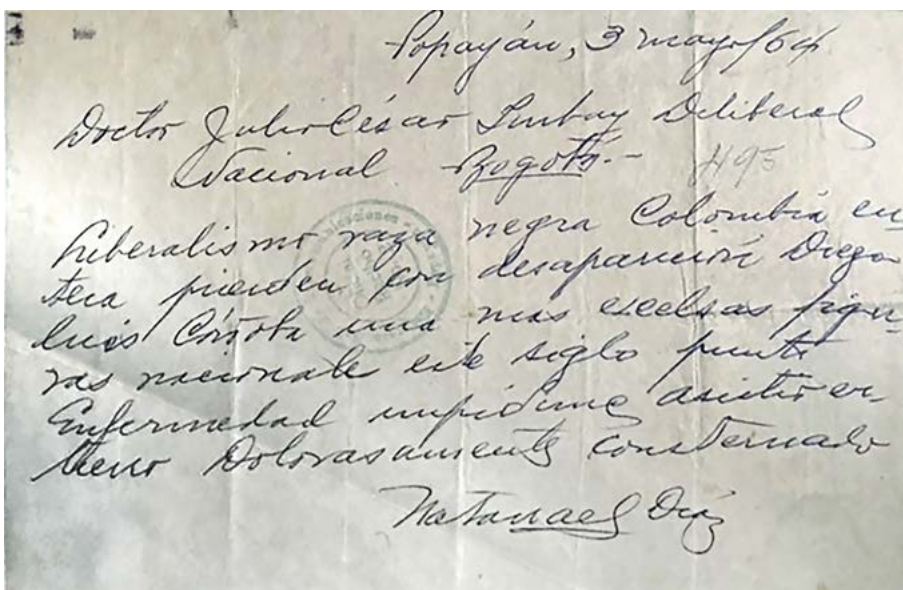 Popayán, 3 mayo/64
Doctor Julio César Turbay Deliberal
Nacional - Bogotá.-
H95
Liberalismo raza negra Colombia en
tera pierden con desaparición Diego
Luis Córdoba una mas excelsas figu-
ras nacionale este siglo punto
Enfermedad impídeme asistir en-
tierro Dolorosamente consternado
Natanael Díaz